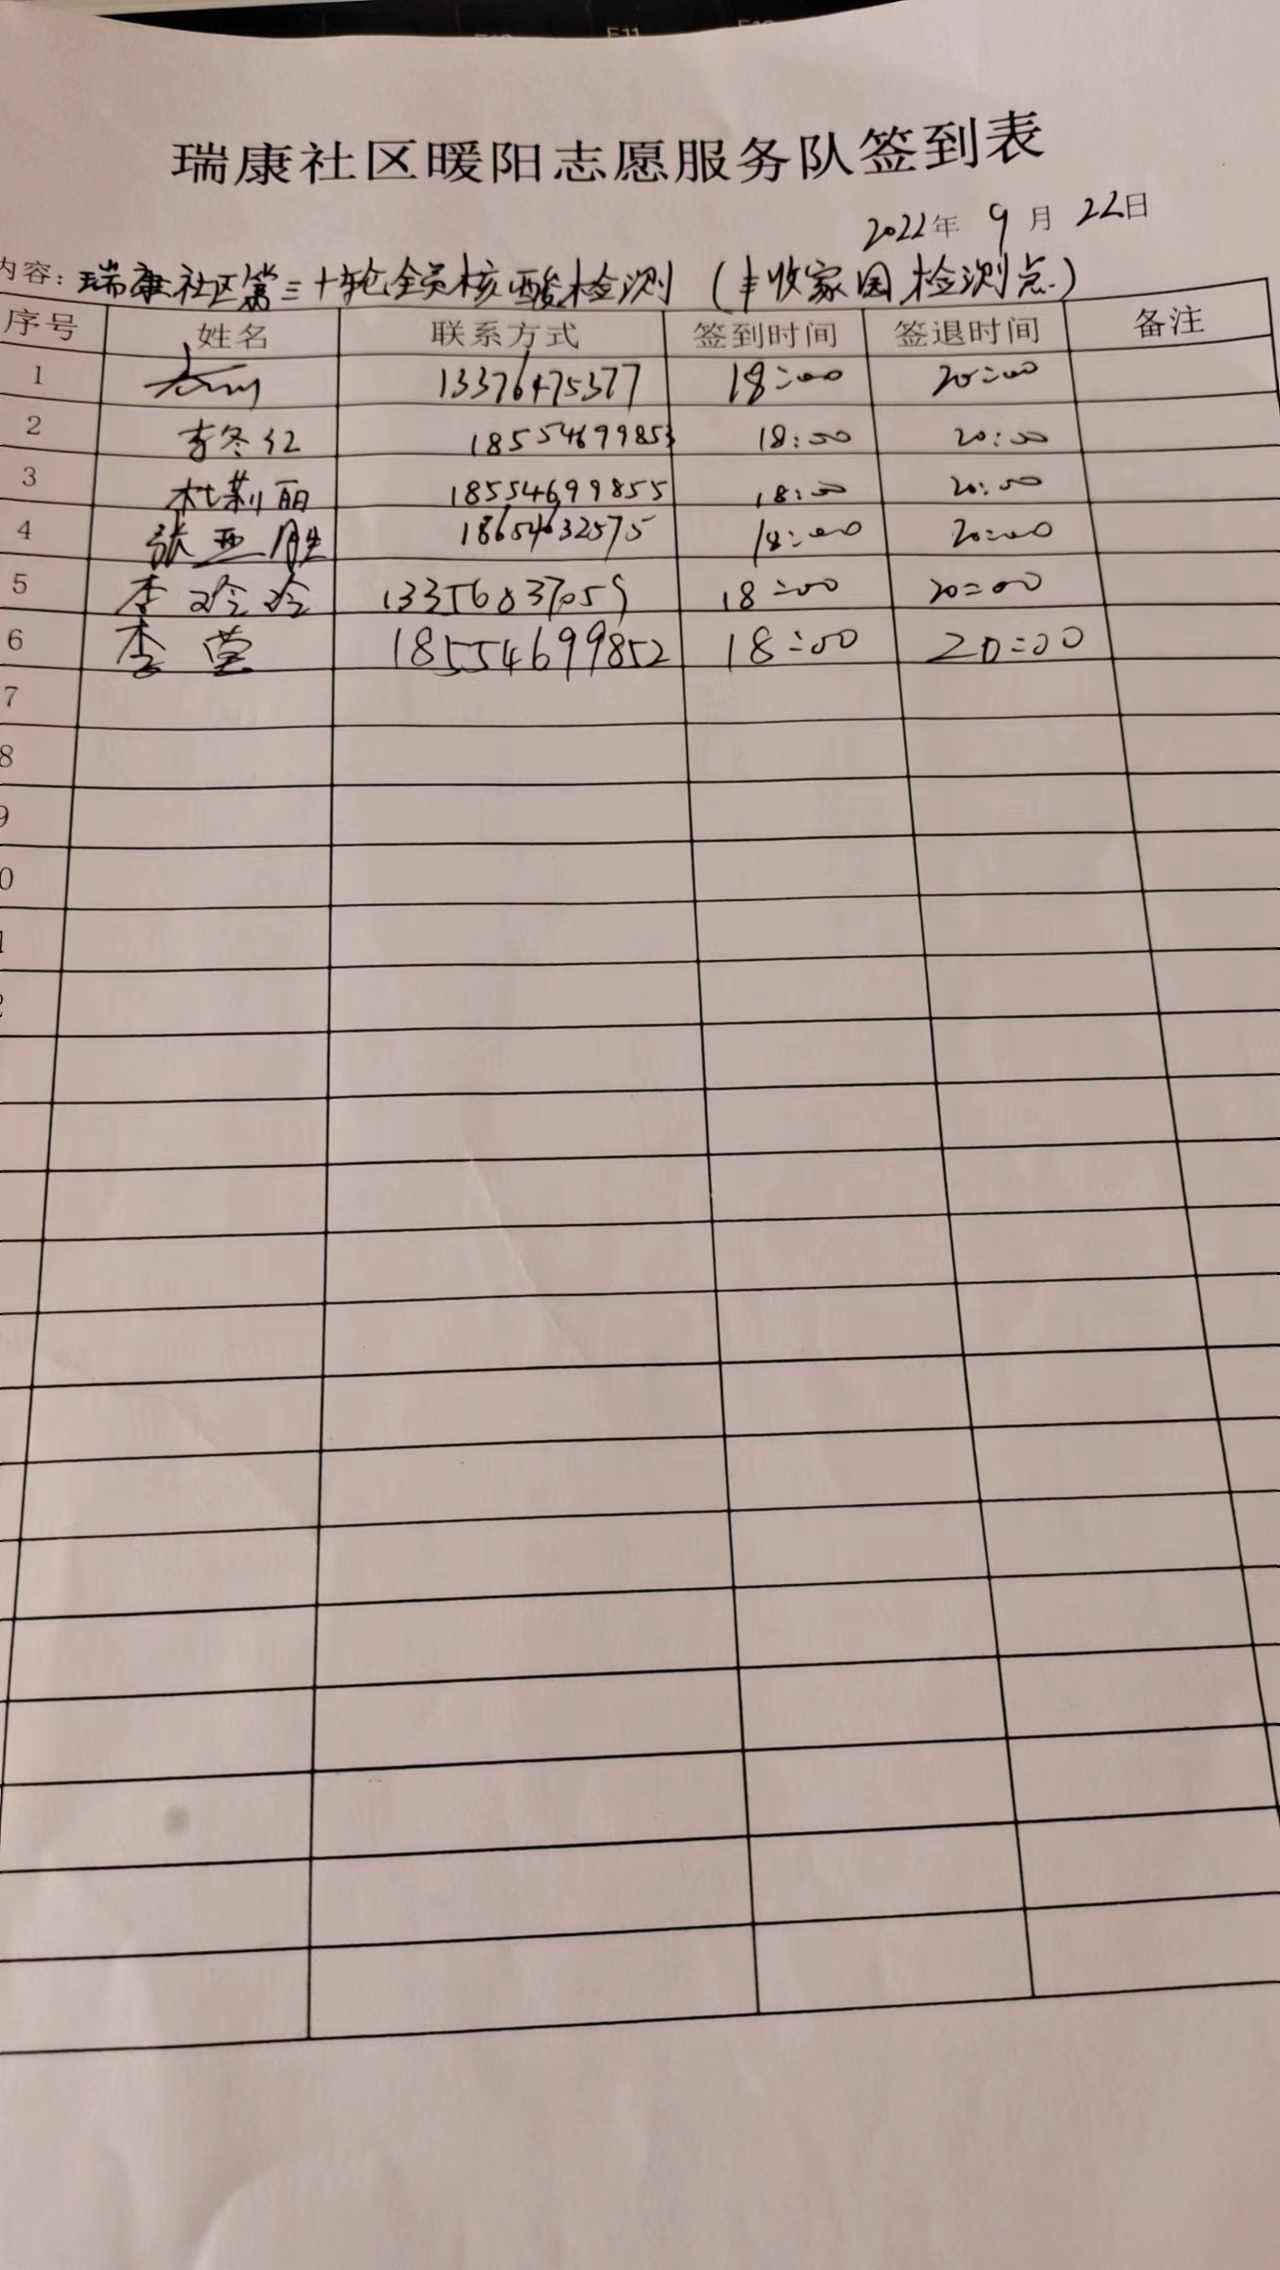 瑞康社区暖阳志愿服务队签到表
2022年 9月 22日
内容: 瑞康社区第三十轮全员核酸检测 (丰收家园检测点)
序号 姓名 联系方式 签到时间 签退时间 备注
1 13376475377 18:00 20:00
2 李冬红 18554699853 18:00 20:00
3 杜莉丽 18554699855 18:00 20:00
4 张亚胜 18654632575 18:00 20:00
5 李玲玲 13356837059 18:00 20:00
6 李莹 18554699852 18:00 20:00
7
8
9
0
1
2